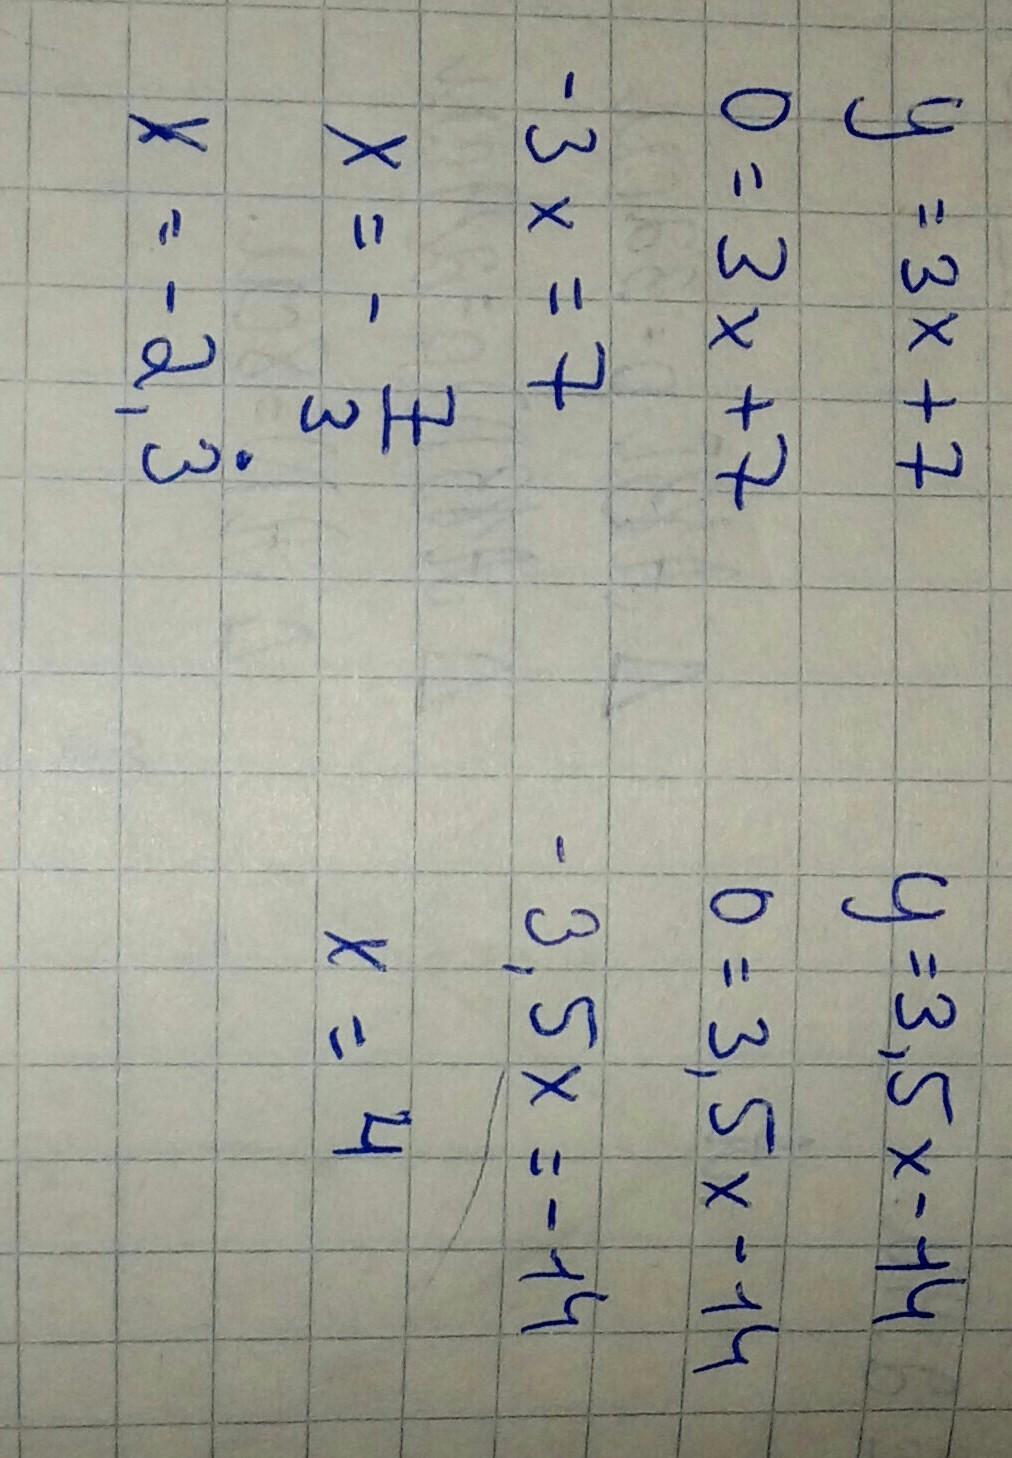 y = 3x + 7
0 = 3x + 7
-3x = 7
x = - 7/3
x = -2,3̇
y = 3,5x - 14
0 = 3,5x - 14
-3,5x = -14
x = 4